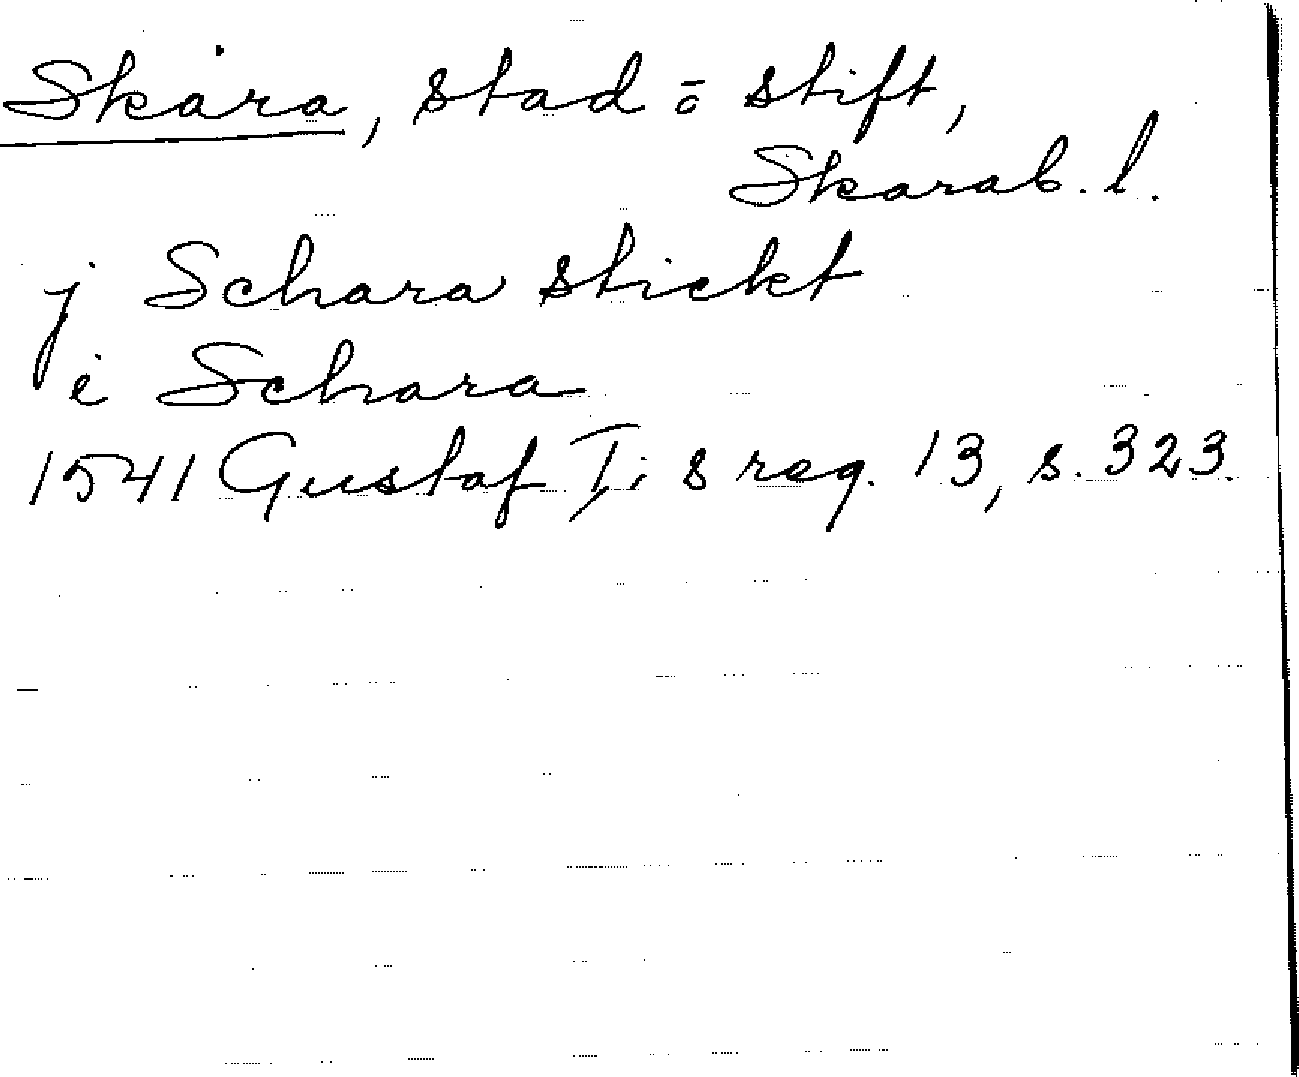 Skara, stad ō stift,
Skarab. l.
j Schara stickt
i Schara
1541 Gustaf I:s reg. 13, s. 323.